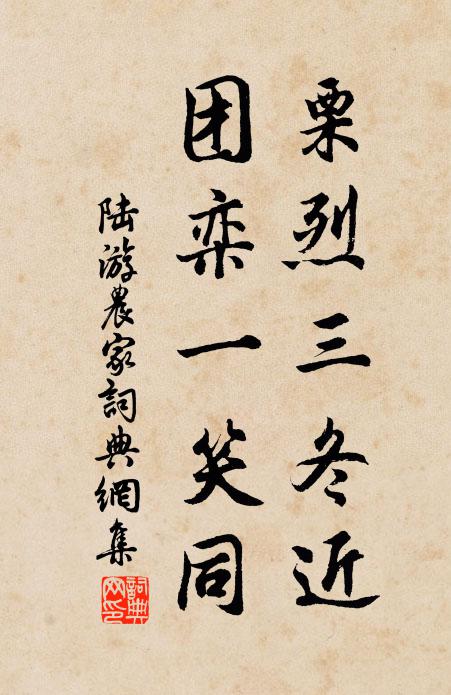 栗烈三冬近
团栾一笑同
陆游農家詞典網集
詞典网印